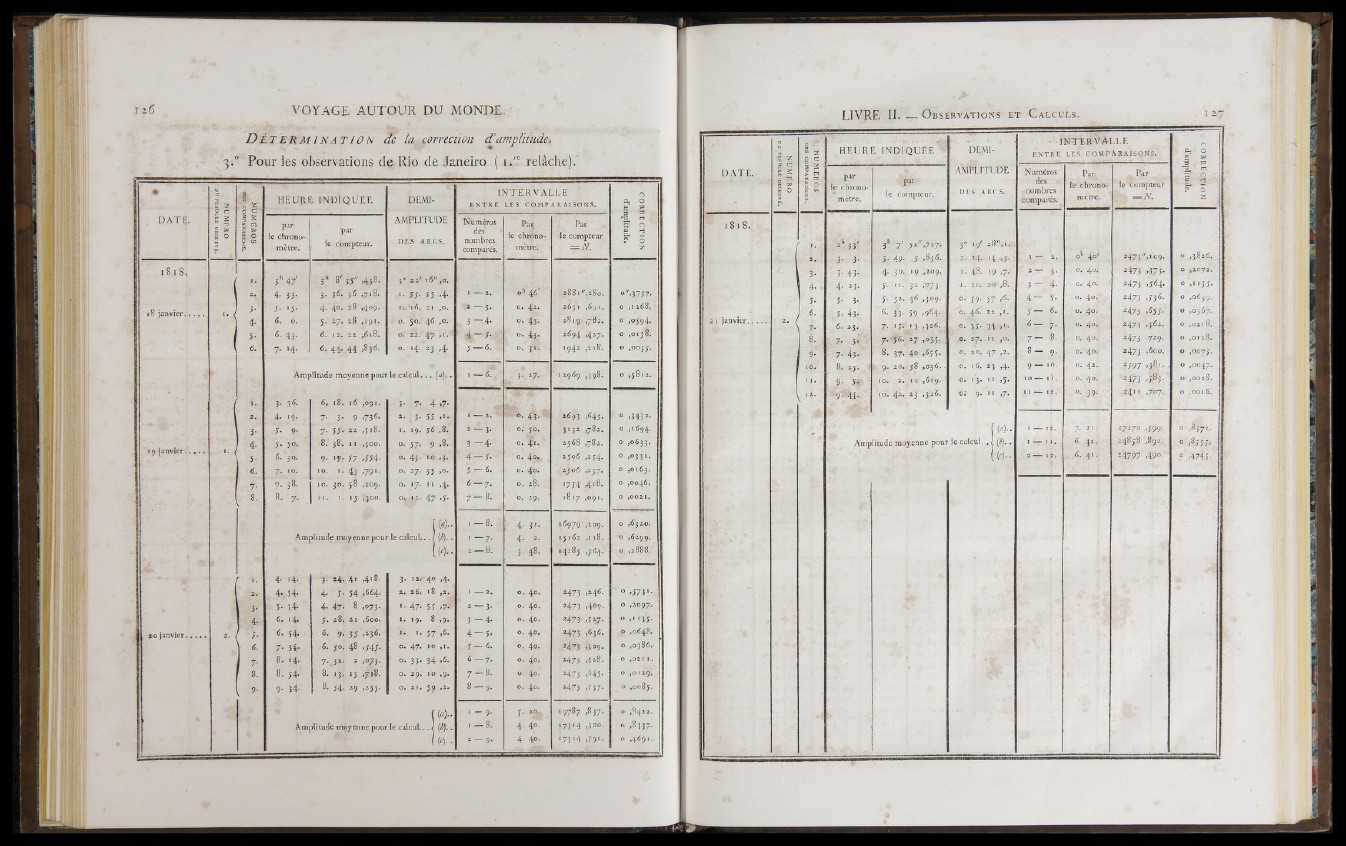 126 VOYAGE AUTOUR DU MONDE.
DÉTERMINATION de la correction d'amplitude.
3.° Pour les observations de Rio de Janeiro ( 1.re relâche).
DATE.
NUMÉRO DU PENDULE OBSERVÉ.
NUMÉROS DES COMPARAISONS.
HEURE INDIQUÉE
par le chronomètre.
par le compteur.
DEMI-AMPLITUDE DES ARCS.
INTERVALLE ENTRE LES COMPARAISONS.
Numéros des nombres comparés.
Par le chronomètre.
Par le compteur = N.
CORRECTION d'amplitude.
1818.
18 janvier..... 1.
1. 3h 47' 3h 8' 55",438. 3° 22' 16",0.
2. 4. 33. 3. 56. 56 ,718. 1. 55. 55 ,4. 1 — 2. 0h 46' 2881",280. 0",3757.
3. 5. 15. 4. 40. 28 ,409. 1. 16. 21 ,0. 2 — 3. 0. 42. 2631 ,691. 0 ,1268.
4. 6. 0. 5. 27. 28 ,191. 0. 50. 46 ,0. 3 — 4. 0. 45. 2819 ,782. 0 ,0594.
5. 6. 43. 6. 12. 22 ,618. 0. 22. 47 ,1. 4 — 5. 0. 43. 2694 ,427. 0 ,0138.
6. 7. 14. 6. 44. 44 ,836. 0. 14. 23 ,4. 5 — 6. 0. 31. 1942 ,218. 0 ,0055.
Amplitude moyenne pour le calcul... (a).. 1 — 6. 3. 27. 12969 ,398. 0 ,5812.
19 janvier..... 1.
1. 3. 36. 6. 18. 16 ,091. 3. 7. 4 ,7.
2. 4. 19. 7. 3. 9 ,736. 2. 3. 55 ,1. 1 — 2. 0. 43. 2693 ,645. 0 ,3432.
3. 5. 9. 7. 55. 22 ,518. 1. 19. 56 ,8. 2 — 3. 0. 50. 3132 ,782. 0 ,1694.
4. 5. 50. 8. 38. 11 ,300. 0. 57. 9 ,8. 3 — 4. 0. 41. 2568 ,782. 0 ,0633.
5. 6. 30. 9. 19. 57 ,554. 0. 43. 10 ,3. 4 — 5. 0. 40. 2506 ,254. 0 ,0331.
6. 7. 10. 10. 1. 43 ,791. 0. 27. 35 ,0. 5 — 6. 0. 40. 2506 ,237. 0 ,0163.
7. 7. 38. 10. 30. 58 ,209. 0. 17. 11 ,4. 6 — 7. 0. 28. 1754 ,418. 0 ,0046.
8. 8. 7. 11. 1. 15 ,300. 0. 12. 47 ,5. 7 — 8. 0. 29. 1817 ,091. 0 ,0021.
Amplitude moyenne pour le calcul...
(a).. 1 — 8. 4. 31. 16979 ,209. 0 ,6320.
(b).. 1 — 7. 4. 2. 15162 ,118. 0 ,6299.
(c).. 2 — 8. 3. 48. 14285 ,564. 0 ,2888.
20 janvier..... 2.
1. 4. 14. 3. 24. 41 ,418. 3. 12. 40 ,4.
2. 4. 54. 4. 5. 54 ,664. 2. 26. 18 ,2. 1 — 2. 0. 40. 2473 ,246. 0 ,3731.
3. 5. 34. 4. 47. 8 ,073. 1. 47. 55 ,7. 2 — 3. 0. 40. 2473 ,409. 0 ,2097.
4. 6. 14. 5. 28. 21 ,600. 1. 19. 8 ,9. 3 — 4. 0. 40. 2473 ,527. 0 ,1135.
5. 6. 54. 6. 9. 35 ,236. 1. 1. 57 ,6. 4 — 5. 0. 40. 2473 ,636. 0 ,0648.
6. 7. 34. 6. 50. 48 ,545. 0. 47. 10 ,1. 5 — 6. 0. 40. 2473 ,309. 0 ,0386.
7. 8. 14. 7. 32. 2 ,073. 0. 33. 34 ,6. 6 — 7. 0. 40. 2473 ,528. 0 ,0211.
8. 8. 54. 8. 13. 15 ,718. 0. 29. 10 ,9. 7 — 8. 0. 40. 2473 ,645. 0 ,0129.
9. 9. 34. 8. 54. 29 ,255. 0. 21. 59 ,2. 8 — 9. 0. 40. 2473 ,537. 0 ,0085.
Amplitude moyenne pour le calcul...
(a).. 1 — 9. 5. 20. 19787 ,837. 0 ,8422.
(b).. 1 — 8. 4. 40. 17314 ,300. 0 ,8337.
(c).. 2 — 9. 4. 40. 17314 ,591. 0 ,4691.
LIVRE II. — OBSERVATIONS ET CALCULS. 127
DATE.
NUMÉRO DU PENDULE OBSERVÉ.
NUMÉROS DES COMPARAISONS.
HEURE INDIQUÉE
par le chronomètre.
par le compteur.
DEMI-AMPLITUDE DES ARCS.
INTERVALLE ENTRE LES COMPARAISONS.
Numéros des nombres comparés.
Par le chronomètre.
Par le compteur = N.
CORRECTION d'amplitude.
1818.
21 janvier..... 2.
1. 2h 33' 3h 7' 52",727. 3° 19' 28",1.
2. 3. 3. 3. 49. 5 ,836. 2. 24. 14 ,3. 1 — 2. 0h 40' 2473",109. 0 ,3826.
3. 3. 43. 4. 30. 19 ,209. 1. 48. 19 ,7. 2 — 3. 0. 40. 2473 ,373. 0 ,2072.
4. 4. 23. 5. 11. 32 ,773. 1. 20. 20 ,8. 3 — 4. 0. 40. 2473 ,564. 0 ,1155.
5. 5. 3. 5. 52. 46 ,309. 0. 59. 57 ,6. 4 — 5. 0. 40. 2473 ,536. 0 ,0639.
6. 5. 43. 6. 33. 59 ,964. 0. 46. 22 ,1. 5 — 6. 0. 40. 2473 ,655. 0 ,0367.
7. 6. 23. 7. 15. 13 ,326. 0. 35. 34 ,1. 6 — 7. 0. 40. 2473 ,362. 0 ,0218.
8. 7. 3. 7. 56. 27 ,055. 0. 27. 11 ,0. 7 — 8. 0. 40. 2473 ,729. 0 ,0128.
9. 7. 43. 8. 37. 40 ,655. 0. 20. 47 ,2. 8 — 9. 0. 40. 2473 ,600. 0 ,0075.
10. 8. 25. 9. 20. 58 ,036. 0. 16. 23 ,4. 9 — 10 0. 42. 2597 ,381. 0 ,0047.
11. 9. 5. 10. 2. 11 ,619. 0. 13. 11 ,5. 10 — 11. 0. 40. 2473 ,583. 0 ,0028.
12. 9. 44. 10. 42. 23 ,326. 0. 9. 11 ,7. 11 — 12. 0. 39. 2411 ,707. 0 ,0016.
Amplitude moyenne pour le calcul...
(a).. 1 — 12. 7. 21. 27270 ,599. 0 ,8571.
(b).. 1 — 11. 6. 41. 24858 ,892. 0 ,8555.
(c).. 2 — 12. 6. 41. 24797 ,490. 0 ,4745.